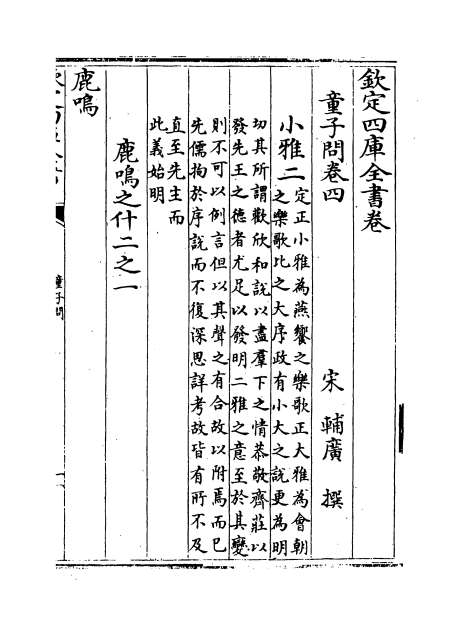 欽定四庫全書卷
童子問卷四 宋 輔廣 撰
小雅二 定正小雅為燕饗之樂歌正大雅為會朝
之樂歌比之大序政有小大之說更為明
切其所謂歡欣和說以盡羣下之情恭敬齊莊以
發先王之德者尤足以發明二雅之意至於其變
則不可以例言但以其聲之有合故以附焉而已
先儒拘於序說而不復深思詳考故皆有所不及
直至先主而
此義始明
鹿鳴之什二之一
鹿鳴
童子問